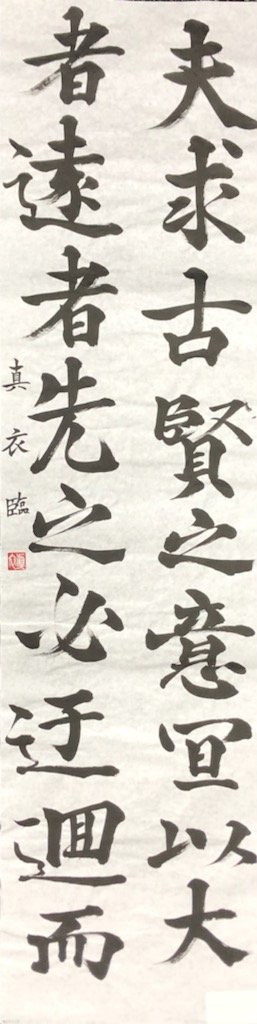 夫求古賢之意宜以大
者遠者先之必迂迴而
真衣臨